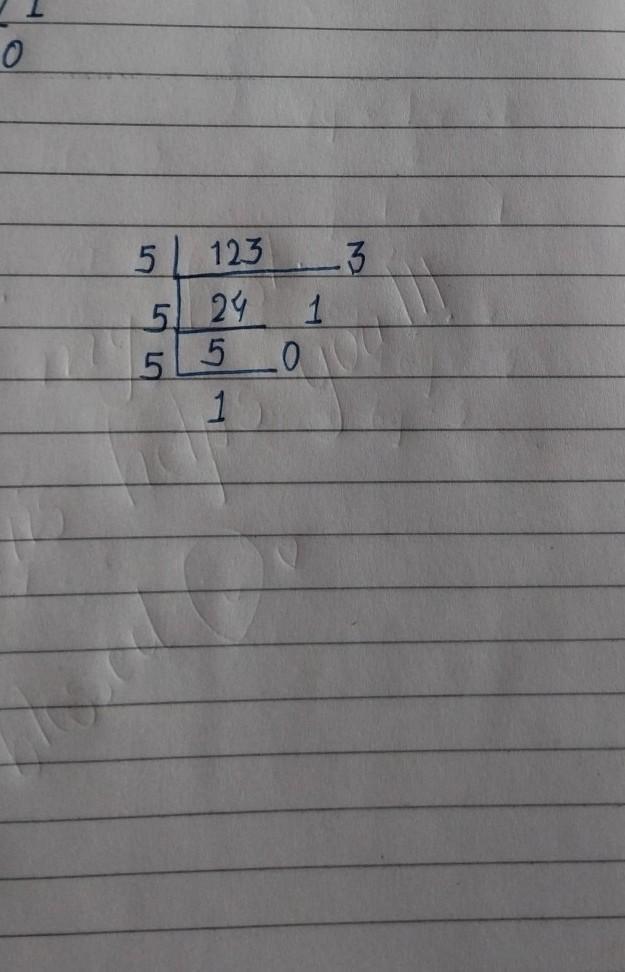 1
0
5 | 123 3
5 | 24 1
5 | 5 0
1